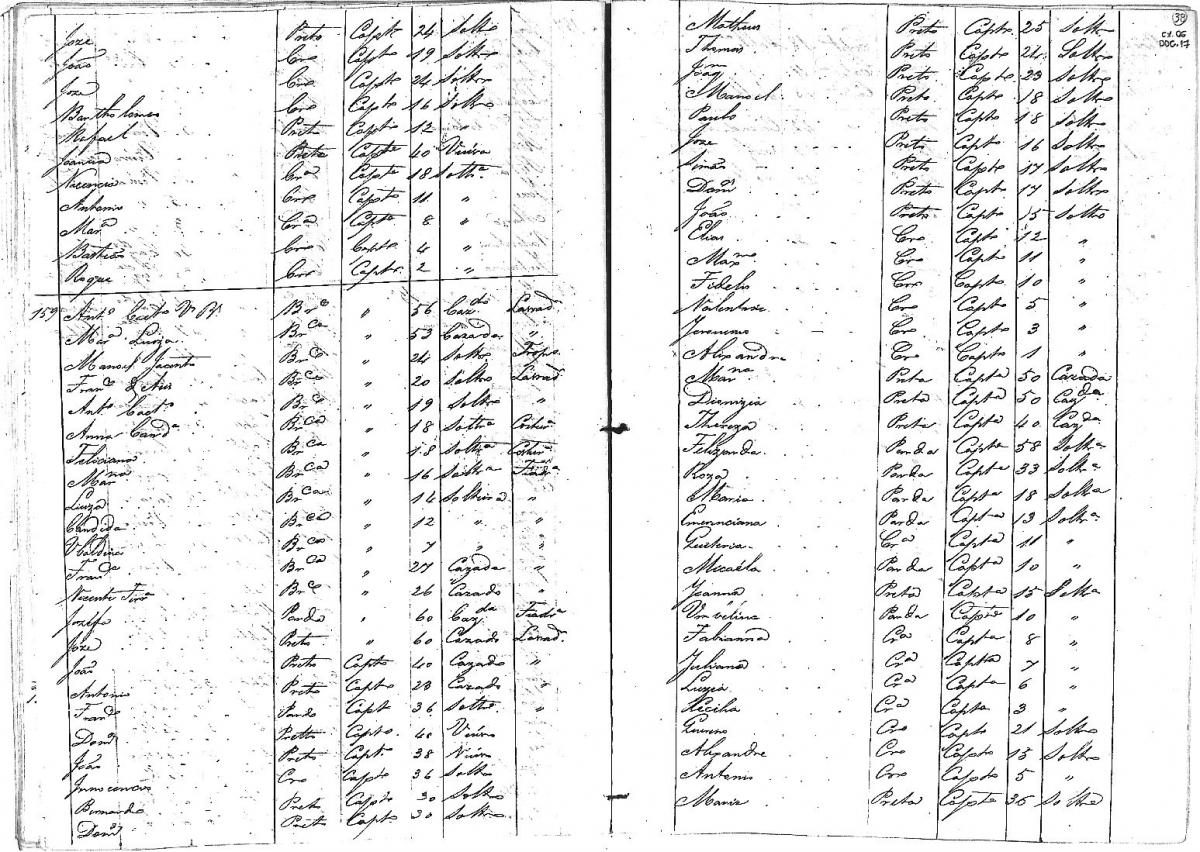 Joze Preto Capto 24 Soltro
João Cro Capto 19 Soltro
Joze Cro Capto 24 Soltro
Bartholomeo Cro Capto 16 Soltro
Rafael Preto Capto 12 "
Joanna Preta Capta 40 Viuva
Cra Capta 18 Soltra
Antonio Cro Capto 11 "
Mara Cra Capta 8 "
Bastião Cro Capto 4 "
Roque Cro Capto 2 "
159 Anto Brco " 56 Cazdo Lavrad
Mara Luiza Brca " 53 Cazada "
Manoel Jacinto Brco " 24 Soltro Tropo
Franco Brco " 20 Soltro Lavrad
Anto Caeto Brco " 19 Soltro "
Anna Canda Brca " 18 Soltra Costura
Feliciana Brca " 18 Soltra Costura
Marna Brca " 16 Soltra Fiada
Luiza Brca " 14 Solteira "
Candida Brca " 12 " "
Brca " 7 " "
Franca Brca " 27 Cazada "
Vicente Brco " 26 Cazado "
Jozefa Parda " 60 Cazda Fiadra
Joze Preto " 60 Cazado Lavrad
João Preto Capto 40 Cazado "
Antonio Preto Capto 23 Cazado "
Franco Pardo Capto 36 Soltro "
Domos Preto Capto 40 Viuvo
João Preto Capto 38 Viuvo
Innocencio Cro Capto 36 Soltro
Bernardo Preto Capto 30 Soltro
Domos Preto Capto 30 Soltro
39
CX. 06
DOC. 17
Matheus Preto Capto 25 Soltro
Thomas Preto Capto 24 Soltro
Joaqm Preto Capto 23 Soltro
Manoel Preto Capto 18 Soltro
Paulo Preto Capto 18 Soltro
Joze Preto Capto 16 Soltro
Simão Preto Capto 17 Soltro
Domos Preto Capto 17 Soltro
João Preto Capto 15 Soltro
Elias Cro Capto 12 "
Maxmo Cro Capto 11 "
Fidelis Cro Capto 10 "
Valentim Cro Capto 5 "
Jeronimo Cro Capto 3 "
Alexandre Cro Capto 1 "
Marna Preta Capta 50 Cazada
Dionizia Preta Capta 50 Cazda
Thereza Preta Capta 40 Cazda
Felizarda Parda Capta 58 Soltra
Roza Parda Capta 33 Soltra
Maria Parda Capta 18 Soltra
Emerenciana Parda Capta 13 Soltra
Quiteria Cra Capta 11 "
Micaela Parda Capta 10 "
Joanna Preta Capta 15 Soltra
Umbelina Parda Capta 10 "
Fabianna Cra Capta 8 "
Juliana Cra Capta 7 "
Luzia Cra Capta 6 "
Cecilia Cra Capta 3 "
Loureno Cro Capto 21 Soltro
Alexandre Cro Capto 15 Soltro
Antonio Cro Capto 5 "
Maria Preta Capta 35 Soltra